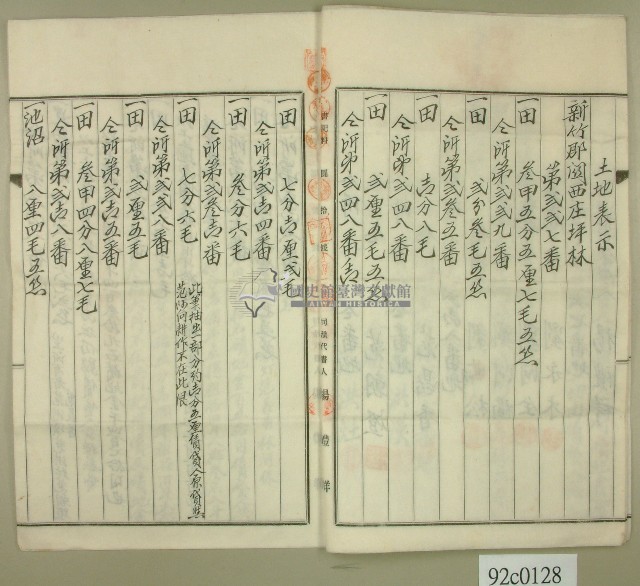 土地表示
新竹郡関西庄坪林
第弍弍七番
一田 叄甲五分五厘七毛五糸
仝所第弍弍九番
一田 弍分叄毛五糸
仝所第弍五番
一田 壱分八毛
仝所第弍四八番
一田 弍厘五毛五糸
仝所第弍四八番
一田 七分壱厘弍毛
仝所第弍壱四番
一田 叄分六毛
仝所第弍叄壱番
一田 七分六毛
此筆抽出一部分約壱分五厘
耕作不在此限
仝所第弍弍八番
一田 弍厘五毛
仝所第弍壱五番
一田 叄甲四分八厘七毛
仝所第弍壱八番
一池沼 八厘四毛五糸
司法代書人
國史館臺灣文獻館
TAIWAN HISTORICA
92c0128